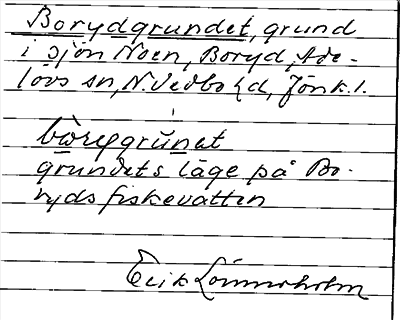 Borydgrundet, grund
i sjön Noen, Boryd, Ade-
lövs sn, N. Vedbo hd, Jönk. l.
bòrygrŭnet
grundets läge på Bo-
ryds fiskevatten
Erik Lönnerholm